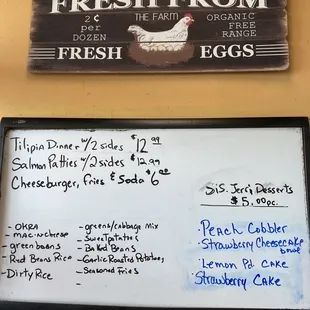 FRESH FROM
2¢ per DOZEN
THE FARM
ORGANIC FREE RANGE
FRESH EGGS
Tilipin Dinner w/2 sides $12.99
Salmon Patties w/2 sides $12.99
Cheeseburger, fries & Soda $6.99
- OKRA
- mac-n-cheese
- green beans
- Red Beans Rice
- Dirty Rice
- greens/cabbage mix
- Sweet potatoes
- Baked Beans
- Garlic Roasted Potatoes,
- Seasoned Fries
-
Sis. Jeri's Desserts
$5.00 pc.
- Peach Cobbler
- Strawberry Cheesecake
- Lemon Pd CAKE
- Strawberry CAKE